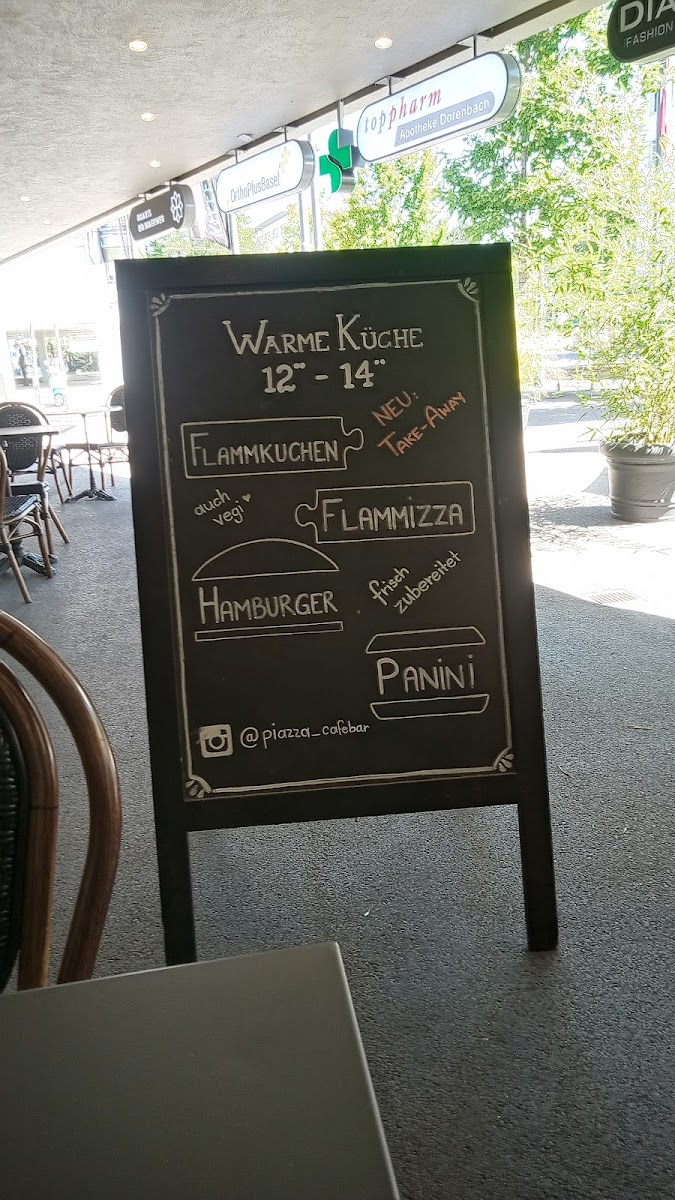 DIA
FASHION
toppharm
Apotheke Dorenbach
OrthoPlusBasel
PRAXIS
WARME KÜCHE
12⁰⁰ - 14⁰⁰
NEU:
TAKE-AWAY
FLAMMKUCHEN
auch
vegi
FLAMMIZZA
HAMBURGER
frisch
zubereitet
PANINI
@piazza_cafebar